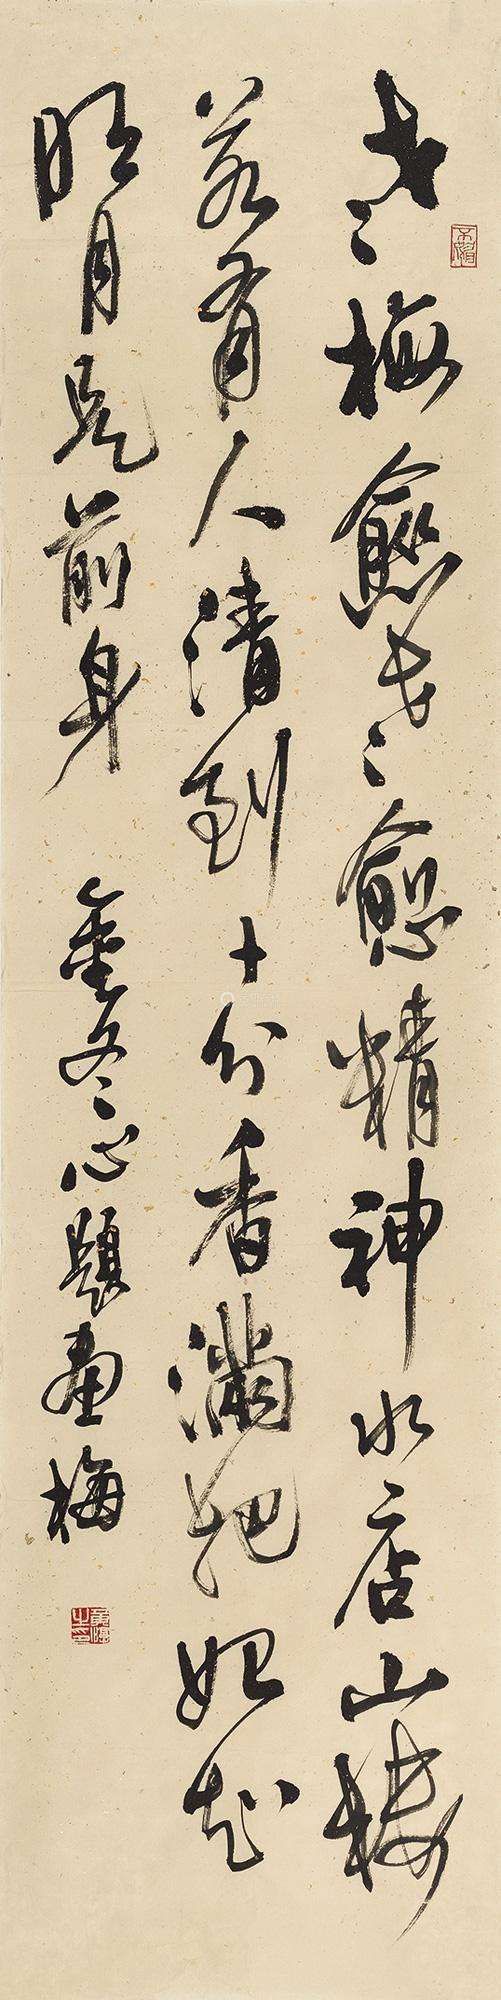 老梅愈老愈精神水店山楼
若有人清到十分香满把始知
明月是前身
金冬心题画梅